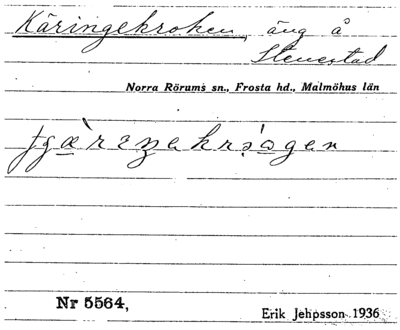 Käringekroken, äng å
Stenestad
Norra Rörums sn., Frosta hd., Malmöhus län
Nr 5564,
Erik Jehpsson 1936